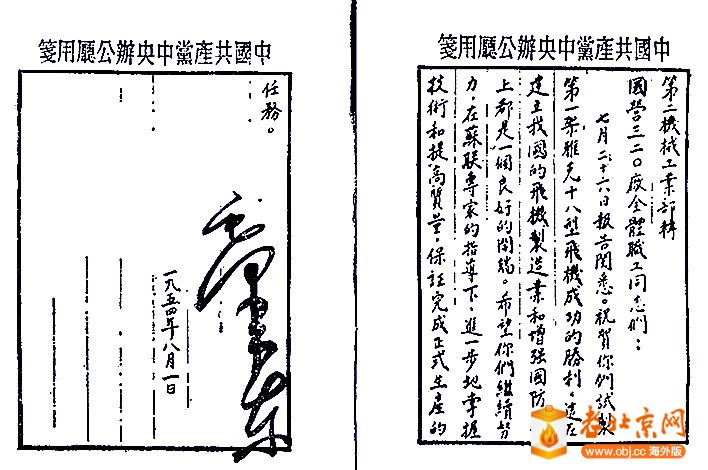 中國共產黨中央辦公廳用箋
第二機械工業部轉
國營三二〇廠全體職工同志們：
七月二十六日報告閱悉。祝賀你們試製
第一架雅克十八型飛機成功的勝利。這在
建立我國的飛機製造業和增强國防力量
上都是一個良好的開端。希望你們繼續努
力，在蘇联專家的指導下，進一步地掌握
技術和提高質量，保証完成正式生產的
中國共產黨中央辦公廳用箋
任務。
毛澤東
一九五四年八月一日
老北京网
www.obj.cc 海外版